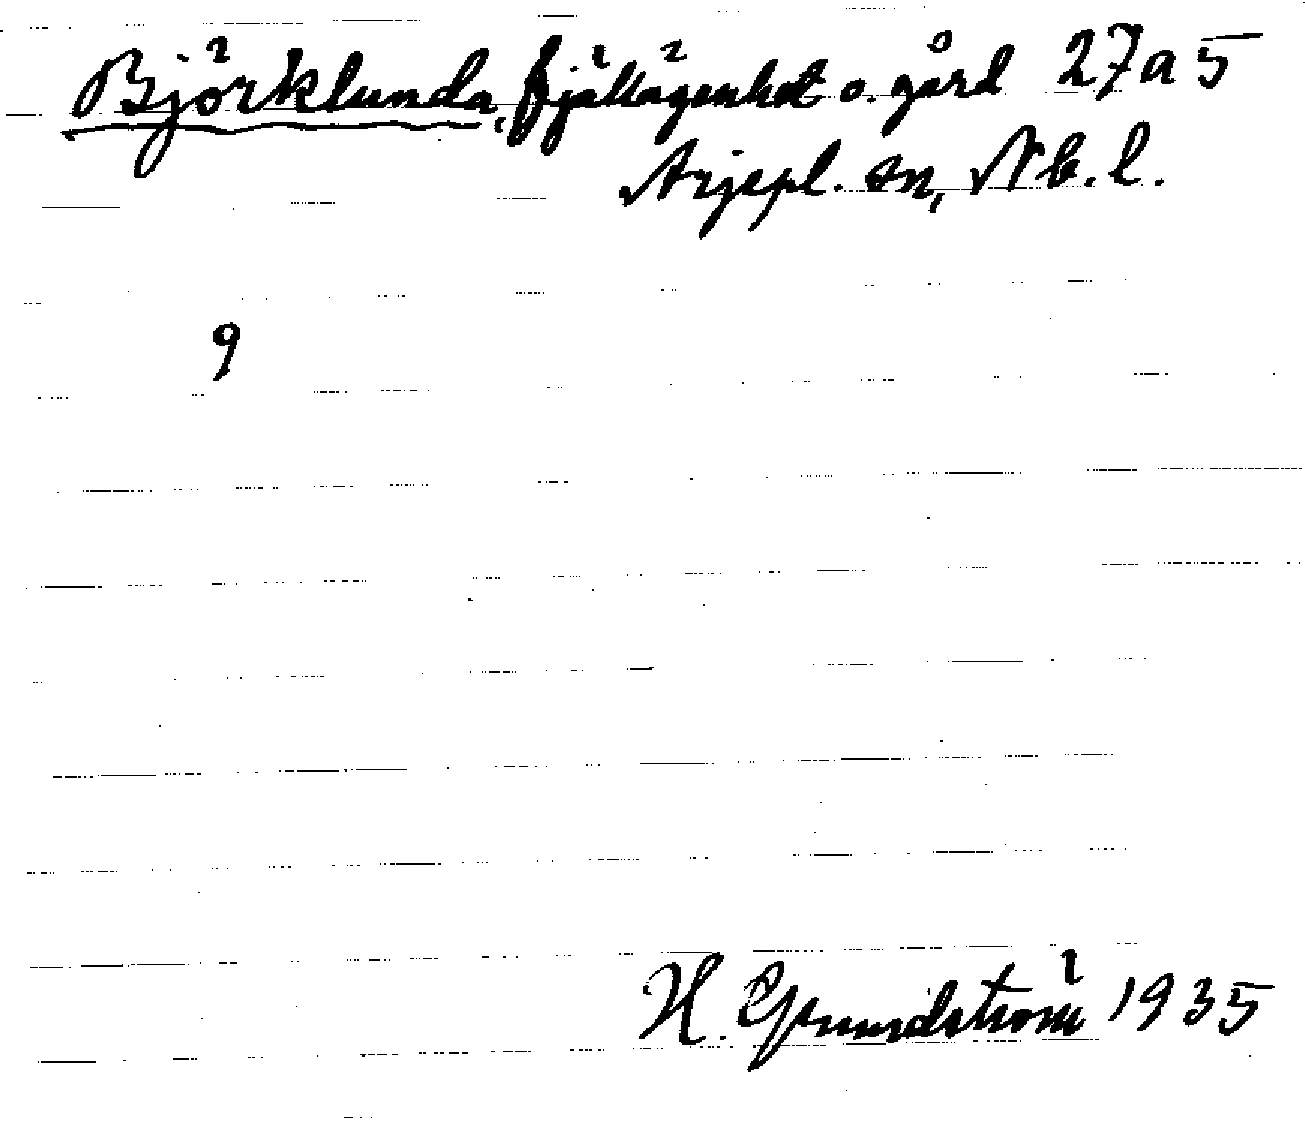 Björklunda, fjällägenhet o. gård 27a5
Arjepl. sn, Nb. l.
9
H. Grundström 1935